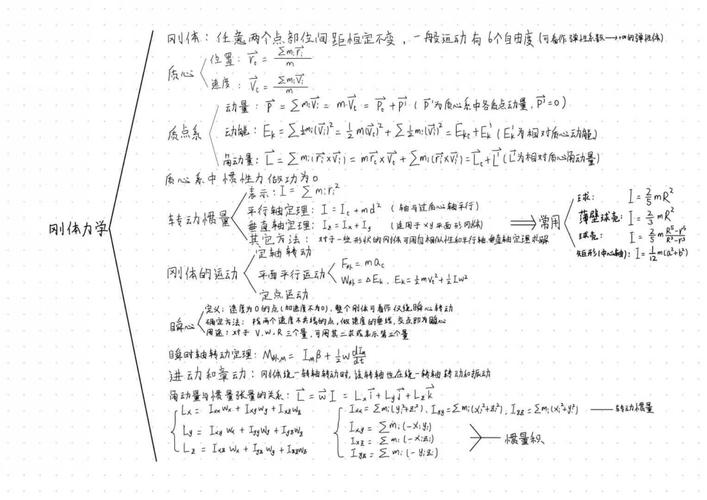 刚体力学
刚体：任意两个点部位间距恒定不变，一般运动有6个自由度（可看作弹性系数→∞的弹性体）
质心
位置：r⃗c = Σmᵢr⃗ᵢ/m
速度：V⃗c = Σmᵢv⃗ᵢ/m
质点系
动量：P⃗ = Σmᵢv⃗ᵢ = mV⃗c = P⃗c + P⃗' （P⃗'为质心系中各质点动量，P⃗'=0）
动能：Ek = Σ½mᵢ(v⃗ᵢ)² = ½m(V⃗c)² + Σ½mᵢ(v⃗ᵢ')² = Ekc + Ek' （Ek'为相对质心动能）
角动量：L⃗ = Σmᵢ(r⃗ᵢ×v⃗ᵢ) = mr⃗c×V⃗c + Σmᵢ(r⃗ᵢ'×v⃗ᵢ') = L⃗c + L⃗' （L⃗'为相对质心角动量）
质心系中惯性力做功为0
转动惯量
表示：I = Σmᵢrᵢ²
平行轴定理：I = Ic + md² （轴与过质心轴平行）
垂直轴定理：Iz = Ix + Iy （适用于xy平面形刚体）
其它方法：对于一些形状的刚体可用自相似性和平行轴、垂直轴定理求解
⇒ 常用
球： I = 2/5 mR²
薄壁球壳： I = 2/3 mR²
球壳： I = 2/5 m (R⁵-r⁵)/(R³-r³)
矩形（中心轴）： I = 1/12 m(a²+b²)
刚体的运动
定轴转动
平面平行运动
F外 = mac
W外 = ΔEk，Ek = ½mvc² + ½Iω²
定点运动
瞬心
定义：速度为0的点（加速度不为0），整个刚体可看作仅绕瞬心转动
确定方法：找两个速度不共线的点，做速度的垂线，交点即为瞬心
用途：对于V、W、R三个量，可用其二求或表示第三个量
瞬时轴转动定理：M外,M = IMβ + ½ω dIM/dt
进动和章动：刚体绕一转轴转动时，该转轴也在绕一转轴转动和振动
角动量与惯量张量的关系：L⃗ = w⃗ I = Lx i⃗ + Ly j⃗ + Lz k⃗
Lx = Ixx Wx + Ixy Wy + Ixz Wz
Ly = Ixy Wx + Iyy Wy + Iyz Wz
Lz = Ixz Wx + Iyz Wy + Izz Wz
Ixx = Σmᵢ(yᵢ²+zᵢ²)，Iyy = Σmᵢ(xᵢ²+zᵢ²)，Izz = Σmᵢ(xᵢ²+yᵢ²) — 转动惯量
Ixy = Σmᵢ(-xᵢyᵢ)
Ixz = Σmᵢ(-xᵢzᵢ)
Iyz = Σmᵢ(-yᵢzᵢ)
惯量积